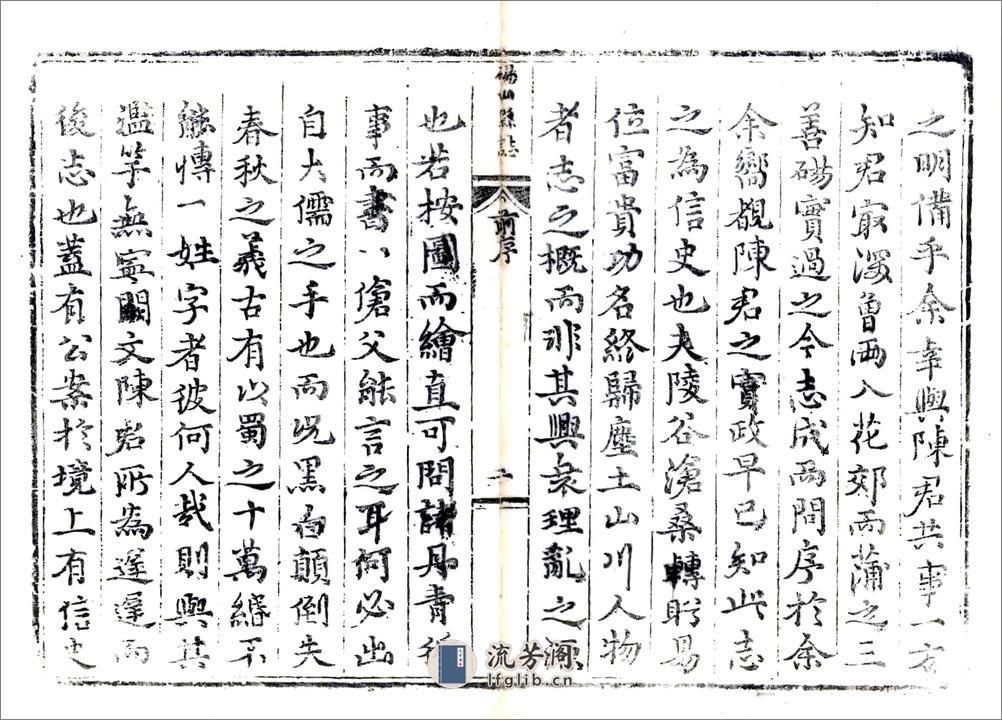 之明備乎余幸與陳君共事一方
知君最深曾兩入花郊而蒲之三
善碭實過之今志成而問序於余
余嚮覩陳君之實政早已知此志
之為信史也夫陵谷滄桑轉盻易
位富貴功名終歸塵土山川人物
者志之概而非其興衰理亂之
碭山縣誌
前序
二
也若按圖而繪直可問諸丹青
事而書傖父能言之耳何必出
自大儒之手也而况黑白顛倒失
春秋之義古有以蜀之十萬緡不
能博一姓字者彼何人哉則與其
濫竽無寧闕文陳君所為遲遲而
後志也蓋有公案於境上有信史
流芳阁
lfglib.cn